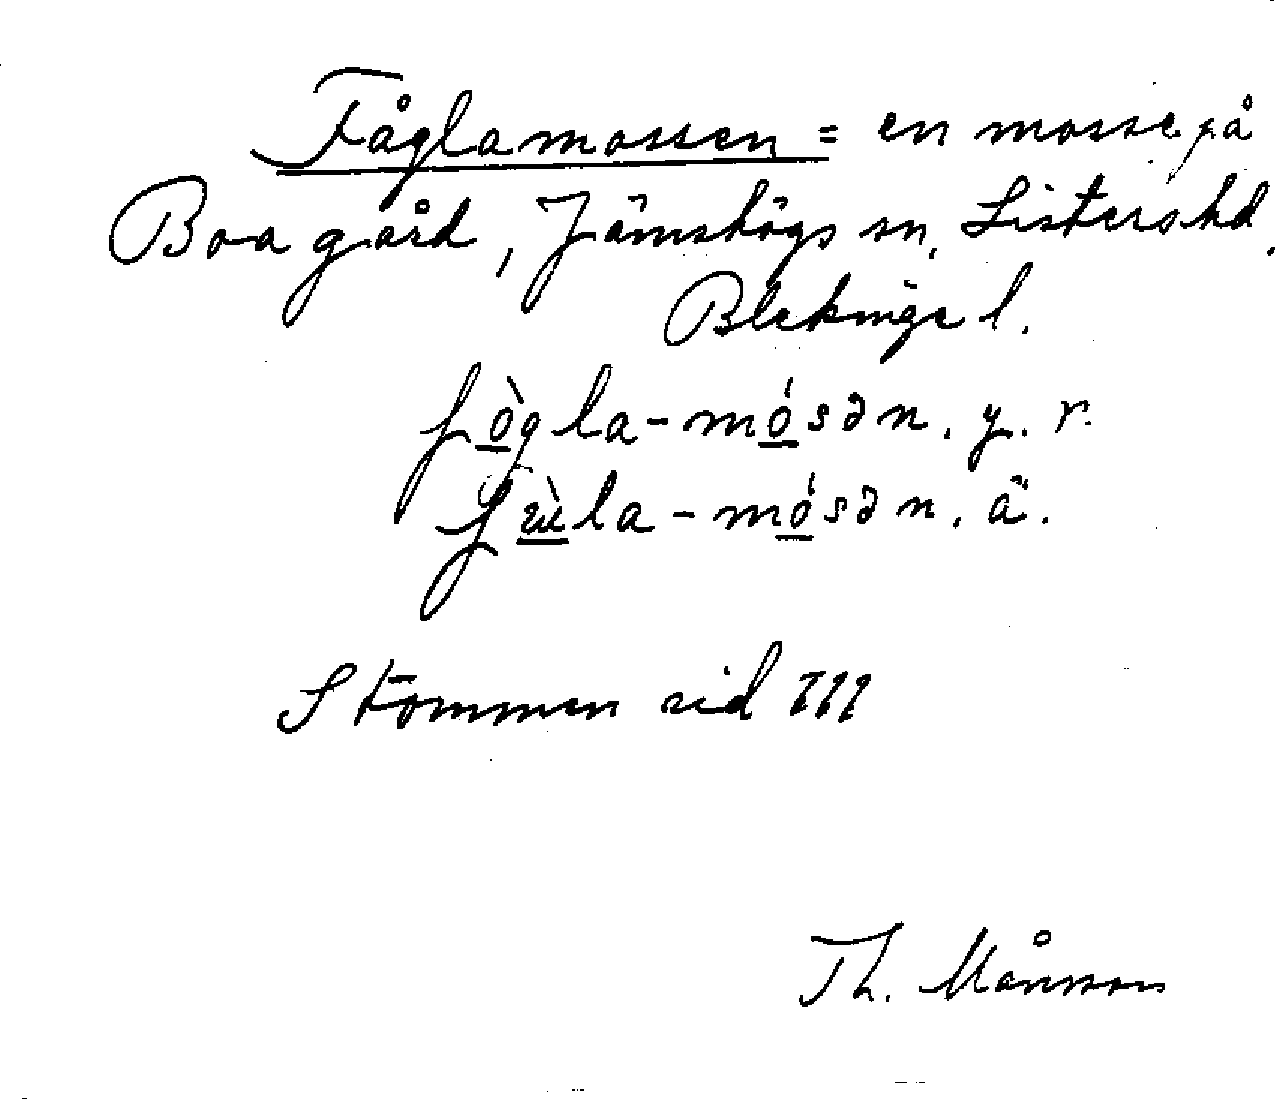 Fåglamossen = en mosse på
Boa gård, Jämshögs sn, Listers hd,
Blekinge l.
fò̲gla-mó̲sən. y. r.
fù̲la-mó̲sən. ä.
Stommen sid 111
Th. Månsson